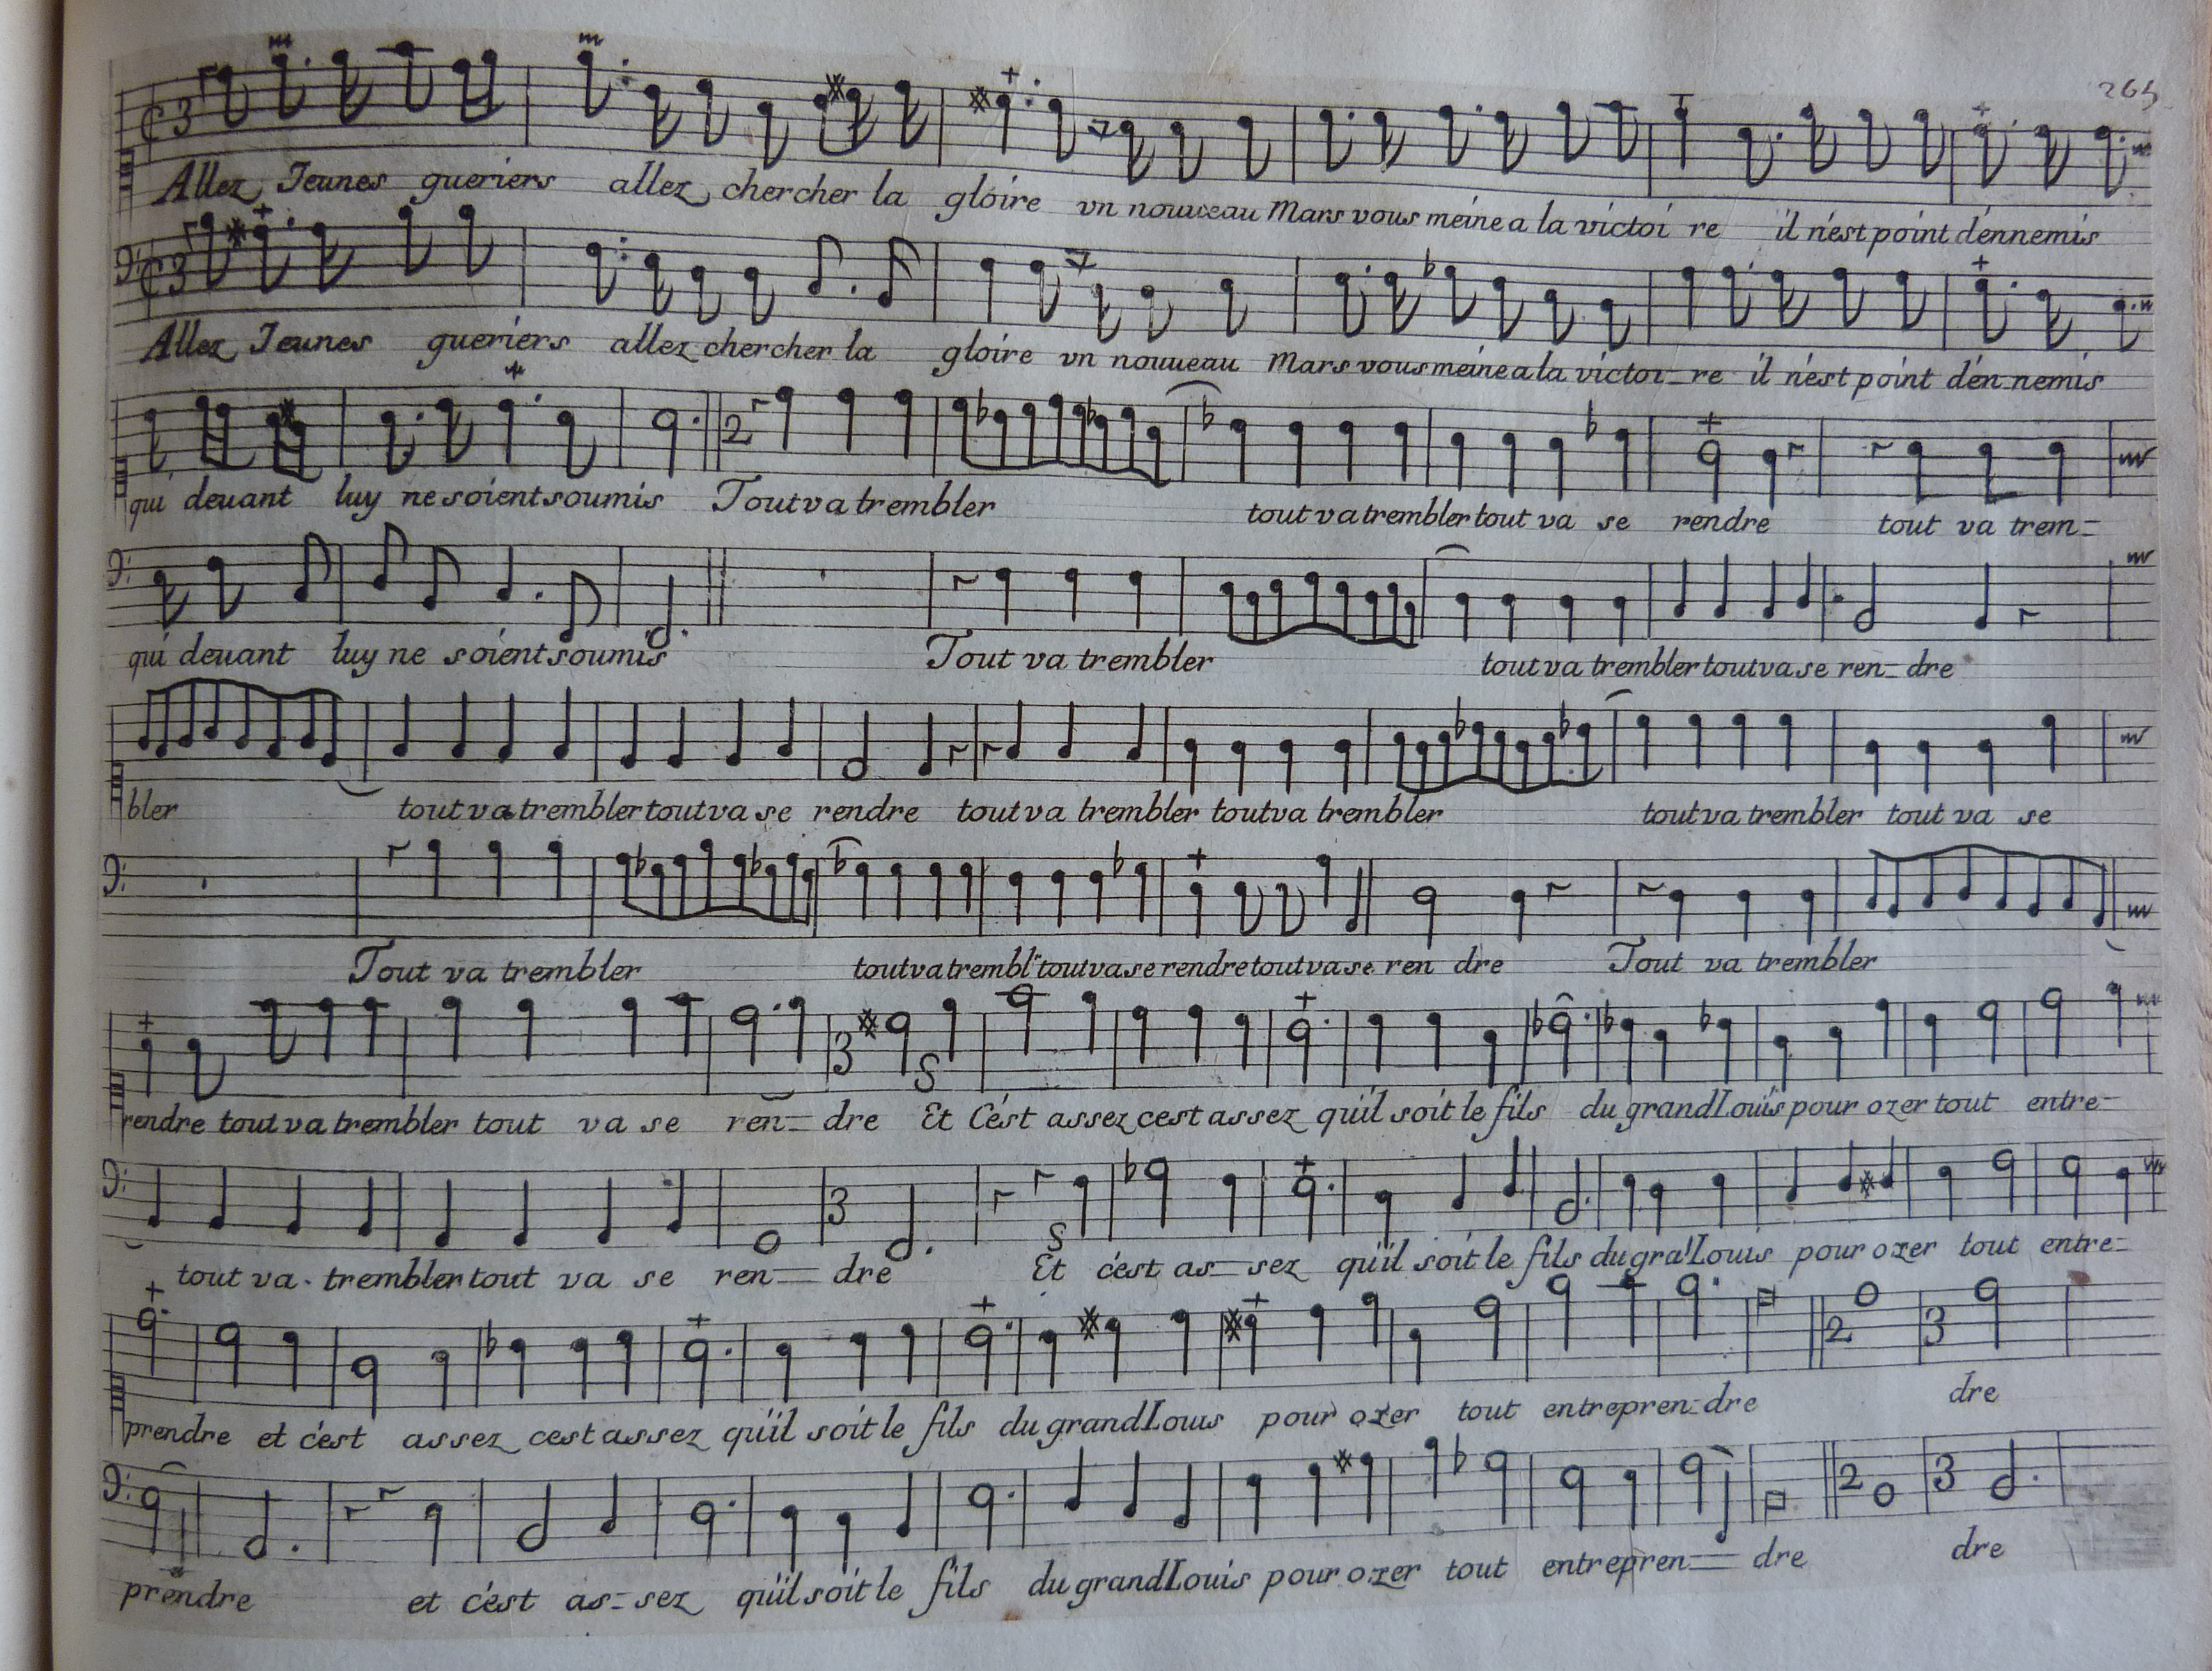 265
Allez Jeunes gueriers allez chercher la gloire vn nouueau Mars vous meine a la victoi re il n'est point d'ennemis
Allez Jeunes gueriers allez chercher la gloire vn nouueau Mars vous meine a la victoi_re il n'est point d'en_nemis
qui deuant luy ne soient soumis Tout va trembler tout va trembler tout va se rendre tout va trem=
qui deuant luy ne soient soumis Tout va trembler tout va trembler tout va se ren_dre
bler tout va trembler tout va se rendre tout va trembler tout va trembler tout va trembler tout va se
Tout va trembler tout va trembl.r tout va se rendre tout va se ren dre Tout va trembler
rendre tout va trembler tout va se ren=dre Et C'est assez cest assez qu'il soit le fils du grand Louis pour ozer tout entre=
tout va trembler tout va se ren=dre Et c'est as=sez qu'il soit le fils du gra! Louis pour ozer tout entre=
prendre et c'est assez cest assez qu'il soit le fils du grand Louis pour ozer tout entrepren=dre dre
prendre et c'est as=sez qu'il soit le fils du grand Louis pour ozer tout entrepren=dre dre